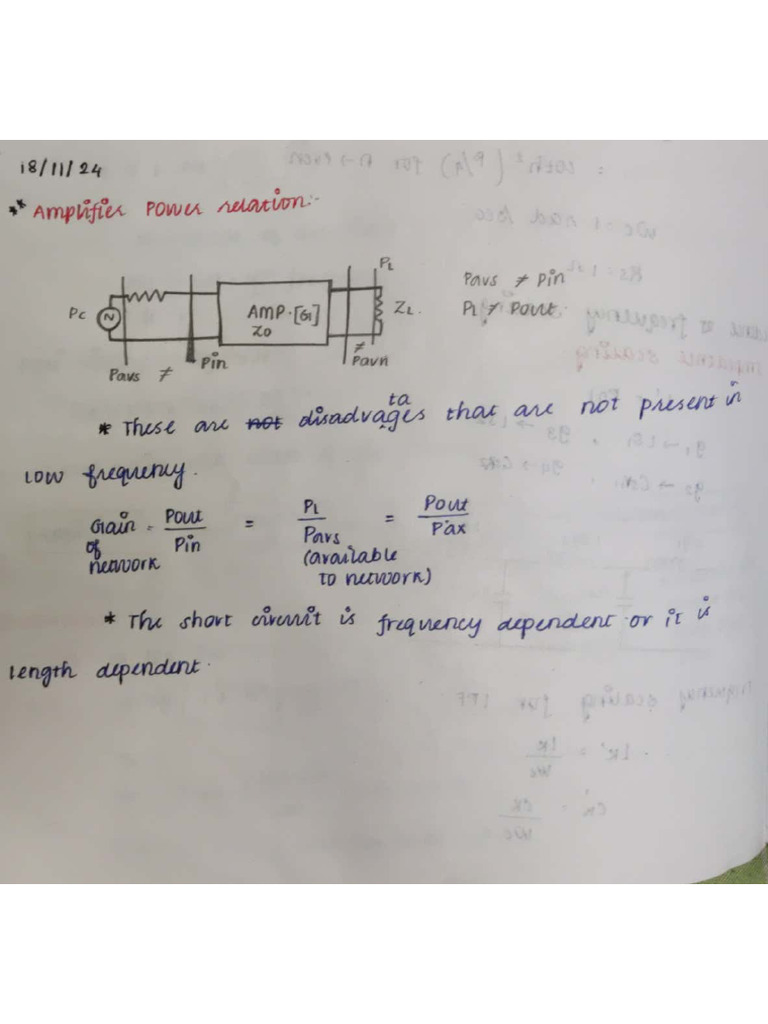 18/11/24
** Amplifier Power relation:-
PL
Pavs ≠ Pin
Pc
AMP.[G]
Zo
ZL
PL ≠ Pout
Pavs ≠ Pin
≠ Pavn
ta
* These are not disadvages that are not present in
low frequency.
Gain of network = Pout/Pin = PL/Pavs = Pout/Pax
(available
to network)
* The short circuit is frequency dependent or it is
length dependent.